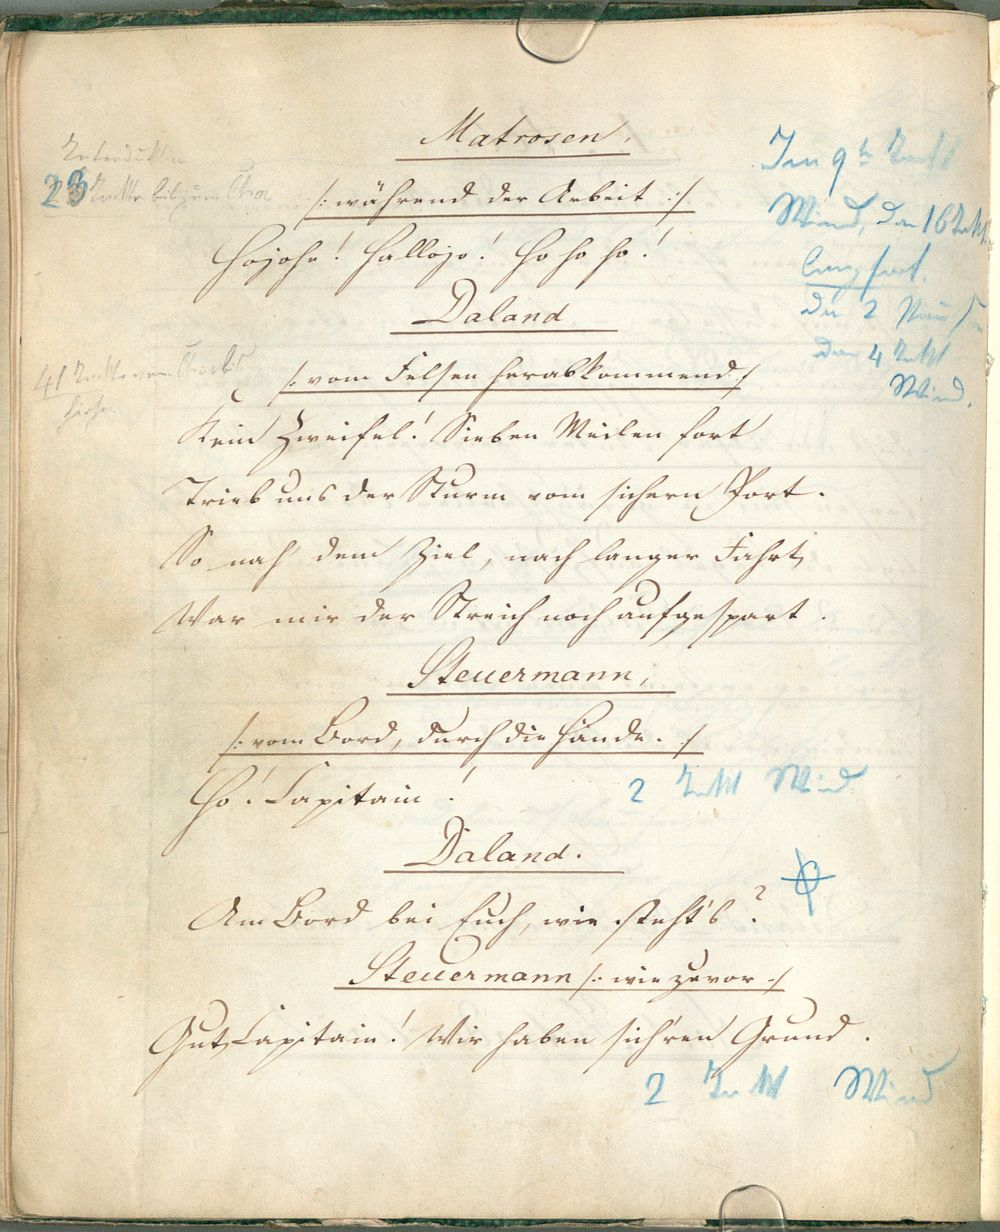 Matrosen.
/: während der Arbeit :/
Hojohe! Hallojo! Ho ho ho!
Daland
/: vom Felsen herabkommend :/
Kein Zweifel! Sieben Meilen fort
Trieb uns der Sturm vom sichern Port.
So nah' dem Ziel, nach langer Fahrt,
War mir der Streich noch aufgespart.
Steuermann,
/: vom Bord, durch die Hände. :/
Ho! Capitain!
2 Takt Wind
Daland.
Am Bord bei Euch, wie steht's?
Steuermann /: wie zuvor :/
Gut, Capitain! Wir haben sich'ren Grund.
2 Takt Wind
23 Takte bis zum Chor
41 Takte vom Chor bis
hier
Im 9t Takt
Wind, dan 16 Takt
lang fort.
Dan 4 Takt
Wind.